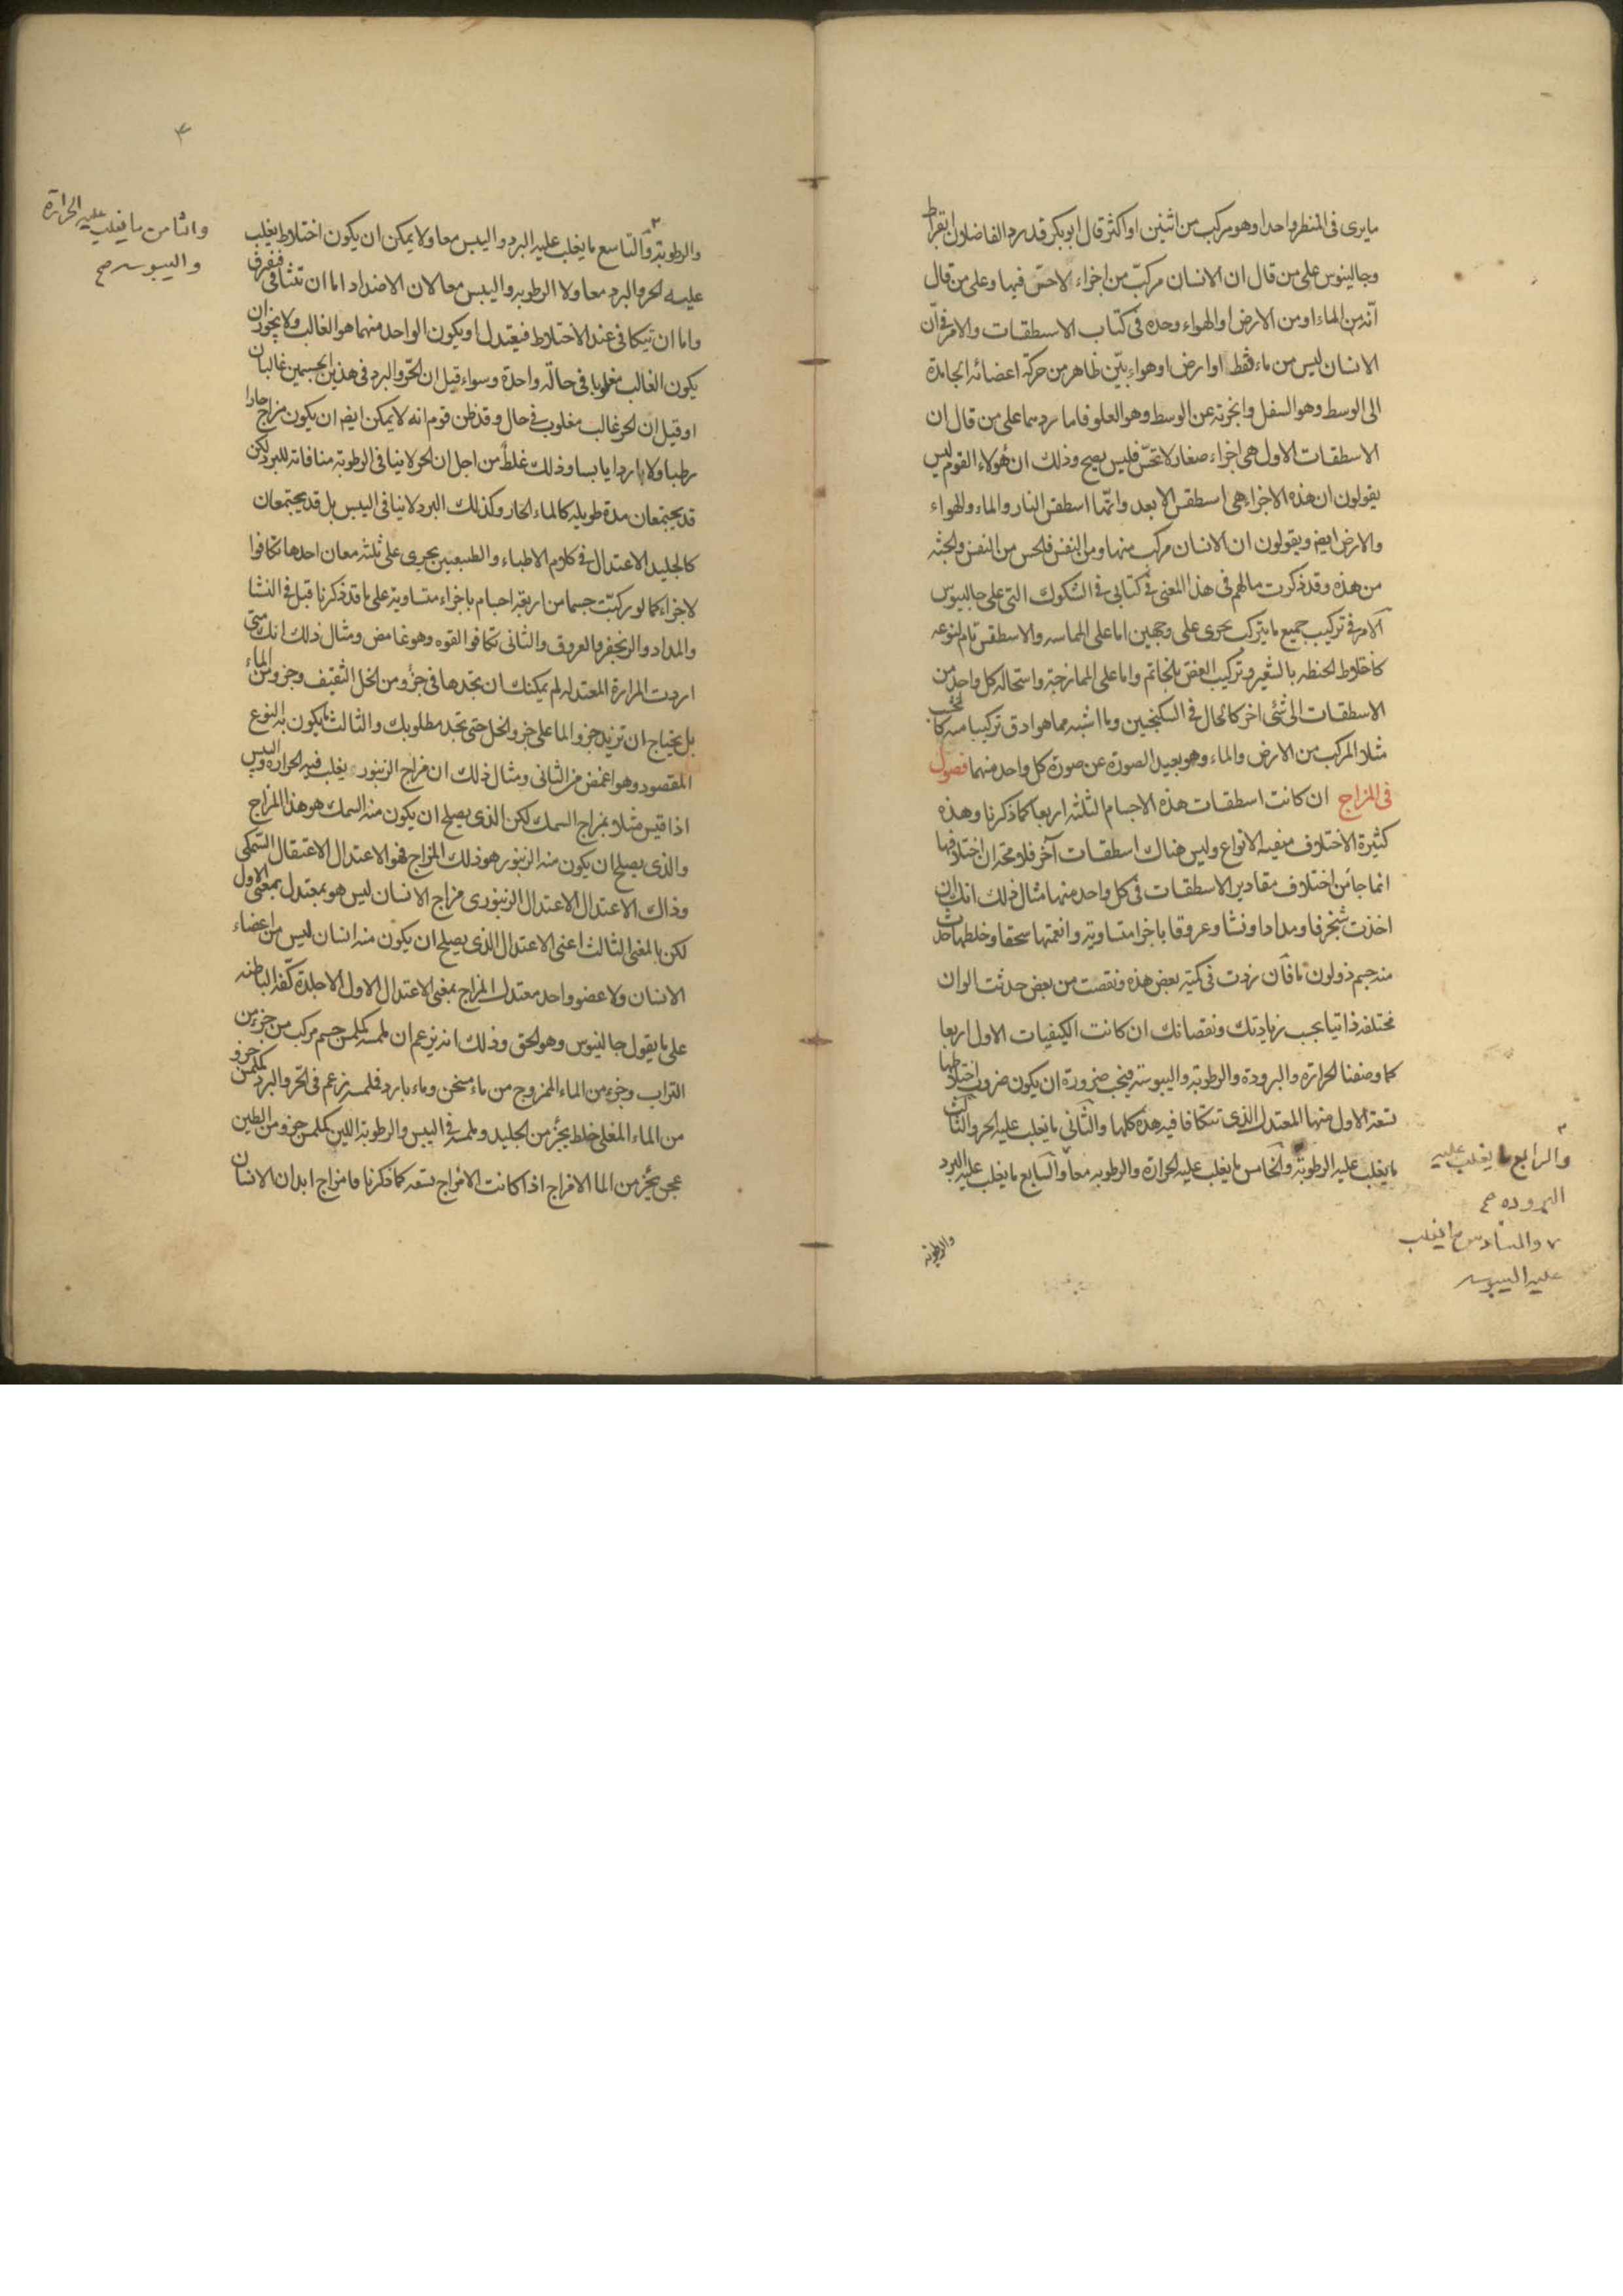 ما يرى فى المنظر واحدا وهو مركب من اثنين او اكثر قال ابو بكر قد رد الفاضلان ابقراط
وجالينوس على من قال ان الانسان مركب من اجزاء لا حس فيها وعلى من قال
انه من الماء او من الارض او الهواء وحده فى كتاب الاسطقسات والامر فى ان
الانسان ليس من ماء فقط او ارض او هواء بين ظاهر من حركة اعضائه الجامدة
الى الوسط وهو السفل وابخرته عن الوسط وهو العلو فاما ردهما على من قال ان
الاسطقسات الاول هى اجزاء صغار لا تحس فليس يصح وذلك ان هؤلاء القوم ليس
يقولون ان هذه الاجزاء هى اسطقس الابعد وانما اسطقس النار والماء والهواء
والارض ايضا ويقولون ان الانسان مركب منها ومن النفس فالحس من النفس والجثة
من هذه وقد ذكرت ما لهم فى هذا المعنى فى كتابى فى الشكوك التى على جالينوس
الامر فى تركيب جميع ما يتركب يجرى على وجهين اما على المماسه والاسطقس تام لنوعه
كاختلاط الحنطه بالشعير وتركيب الفص بالخاتم واما على الممازجة واستحالة كل واحد من
الاسطقسات الى شئ اخر كالحال فى السكنجبين وما اشبه مما هو ادق تركيبا منه
مثلا المركب من الارض والماء وهو بعيد الصورة عن صورة كل واحد منهما فصول
فى المزاج ان كانت اسطقسات هذه الاجسام الثلثه اربعا كما ذكرنا وهذه
كثيرة الاختلاف الانواع وليس هناك اسطقسات آخر فلا محة ان اختلافها
انما جا من اختلاف مقادير الاسطقسات فى كل واحد منها مثال ذلك انك ان
اخذت شنجرفا ومدادا ونشا وعروقا باجزا متساوية وانعمتها سحقا وخلطتها حدث
منه جسم ذو لون ما فان زدت فى كمية بعض هذه ونقصت من بعض حدثت الوان
مختلفة ذاتيا بحسب زيادتك ونقصانك ان كانت الكيفيات الاول اربعا
كما وصفنا الحرارة والبرودة والرطوبة واليبوسة فيجب ضرورة ان يكون ضروب اختلاطها
تسعة الاول منها المعتدل الذى تتكافا فيه هذه كلها والثانى ما يغلب عليه الحر والثالث
ما يغلب عليه الرطوبة والخامس ما يغلب عليه الحرارة والرطوبه معا والسابع ما يغلب عليه البرد
والرابع ما يغلب عليه
البروده صح
والسادس ما يغلب
عليه اليبوسه
والرطوبة
والرطوبة والتاسع ما يغلب عليه البرد واليبس معا ولا يمكن ان يكون اختلاط يغلب
عليه الحر والبرد معا ولا الرطوبه واليبس معا لان الاضداد اما ان تتنافى
واما ان تتكافى عند الاختلاط فيعتدل او يكون الواحد منهما هو الغالب ولا يجوز ان
يكون الغالب مغلوبا فى حالة واحدة وسواء قيل ان الحر والبرد فى هذين الجسمين غالبان
او قيل ان الحر غالب مغلوب فى حال وقد ظن قوم انه لا يمكن ايضا ان يكون مزاج حارا
رطبا ولا باردا يابسا وذلك غلط من اجل ان الحر لا ينافى الرطوبة منافاته للبرد لكن
قد يجتمعان مدة طويله كالماء الحار وكذلك البرد لا ينافى اليبس بل قد يجتمعان
كالجليد الاعتدال فى كلام الاطباء والطبيعيين يجرى على ثلثه معان احدها تكافوا
لاجزاء كما لو ركبت جسما من اربعة اجسام باجزاء متساوية على ما قد ذكرنا قبل فى النشا
والمداد والزنجفر والعروق والثانى تكافو القوه وهو غامض ومثال ذلك انك متى
اردت المرارة المعتدله لم يمكنك ان تجدها فى جزء من الخل الثقيف وجزء من الماء
بل يحتاج ان تزيد جزو الما على جزو الخل حتى تجد مطلوبك والثالث ما يكون به النوع
المقصود وهو اغمض من الثانى ومثال ذلك ان مزاج الزنبور يغلب فيه الحراره واليبس
اذا قيس مثلا بمزاج السمك لكن الذى يصلح ان يكون منه السمك هو هذا المزاج
والذى يصلح ان يكون منه الزنبور هو ذلك المزاج فهو الاعتدال الاعتقال السمكى
وذاك الاعتدال الاعتدال الزنبورى مزاج الانسان ليس هو بمعتدل بمعنى الاول
لكن بالمعنى الثالث اعنى الاعتدال الذى يصلح ان يكون منه انسان ليس من اعضاء
الانسان ولا عضو واحد معتدل المزاج بمعنى الاعتدال الاول الا جلدة كفه الباطنه
على ما يقول جالينوس وهو الحق وذلك انه يزعم ان لمسه كلمس جسم مركب من جزء من
التراب وجزء من الماء الممزوج من ماء مسخن وماء بارد فلمسه زعم فى الحر والبرد كلمس جزو
من الماء المغلى خلط بجزء من الجليد ولمسه فى اليبس والرطوبة اللين كلمس جزو من الطين
عجن بجزء من الما الامزاج اذا كانت الامزاج تسعه كما ذكرنا فامزاج ابدان الانسان
والثامن ما يغلب عليه الحرارة
واليبوسه صح